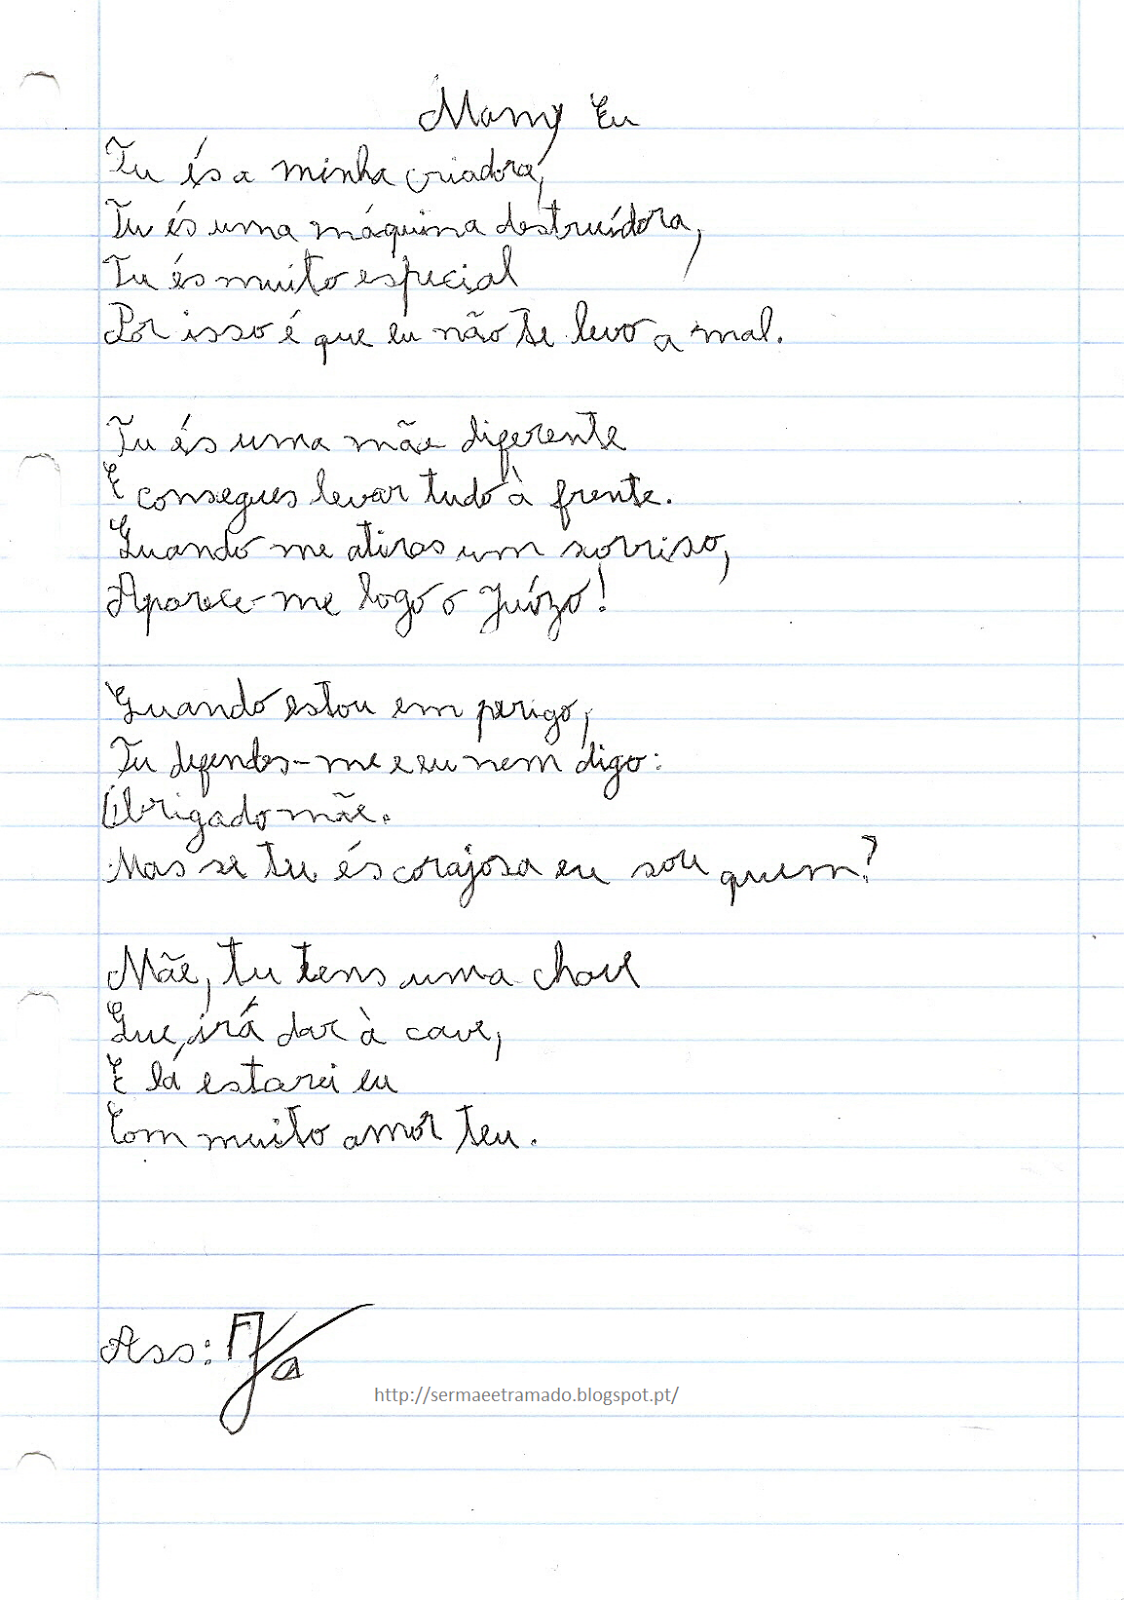 Mamy Eu
Tu és a minha criadora,
Tu és uma máquina destruídora,
Tu és muito especial
Por isso é que eu não te levo a mal.
Tu és uma mãe diferente
E consegues levar tudo à frente.
Quando me atiras um sorriso,
Aparece-me logo o Juízo!
Quando estou em perigo,
Tu defendes-me e eu nem digo:
Obrigado mãe.
Mas se tu és corajosa eu sou quem?
Mãe, tu tens uma chave
Que, irá dar à cave,
E lá estarei eu
Com muito amor teu.
Ass:
http://sermaeetramado.blogspot.pt/